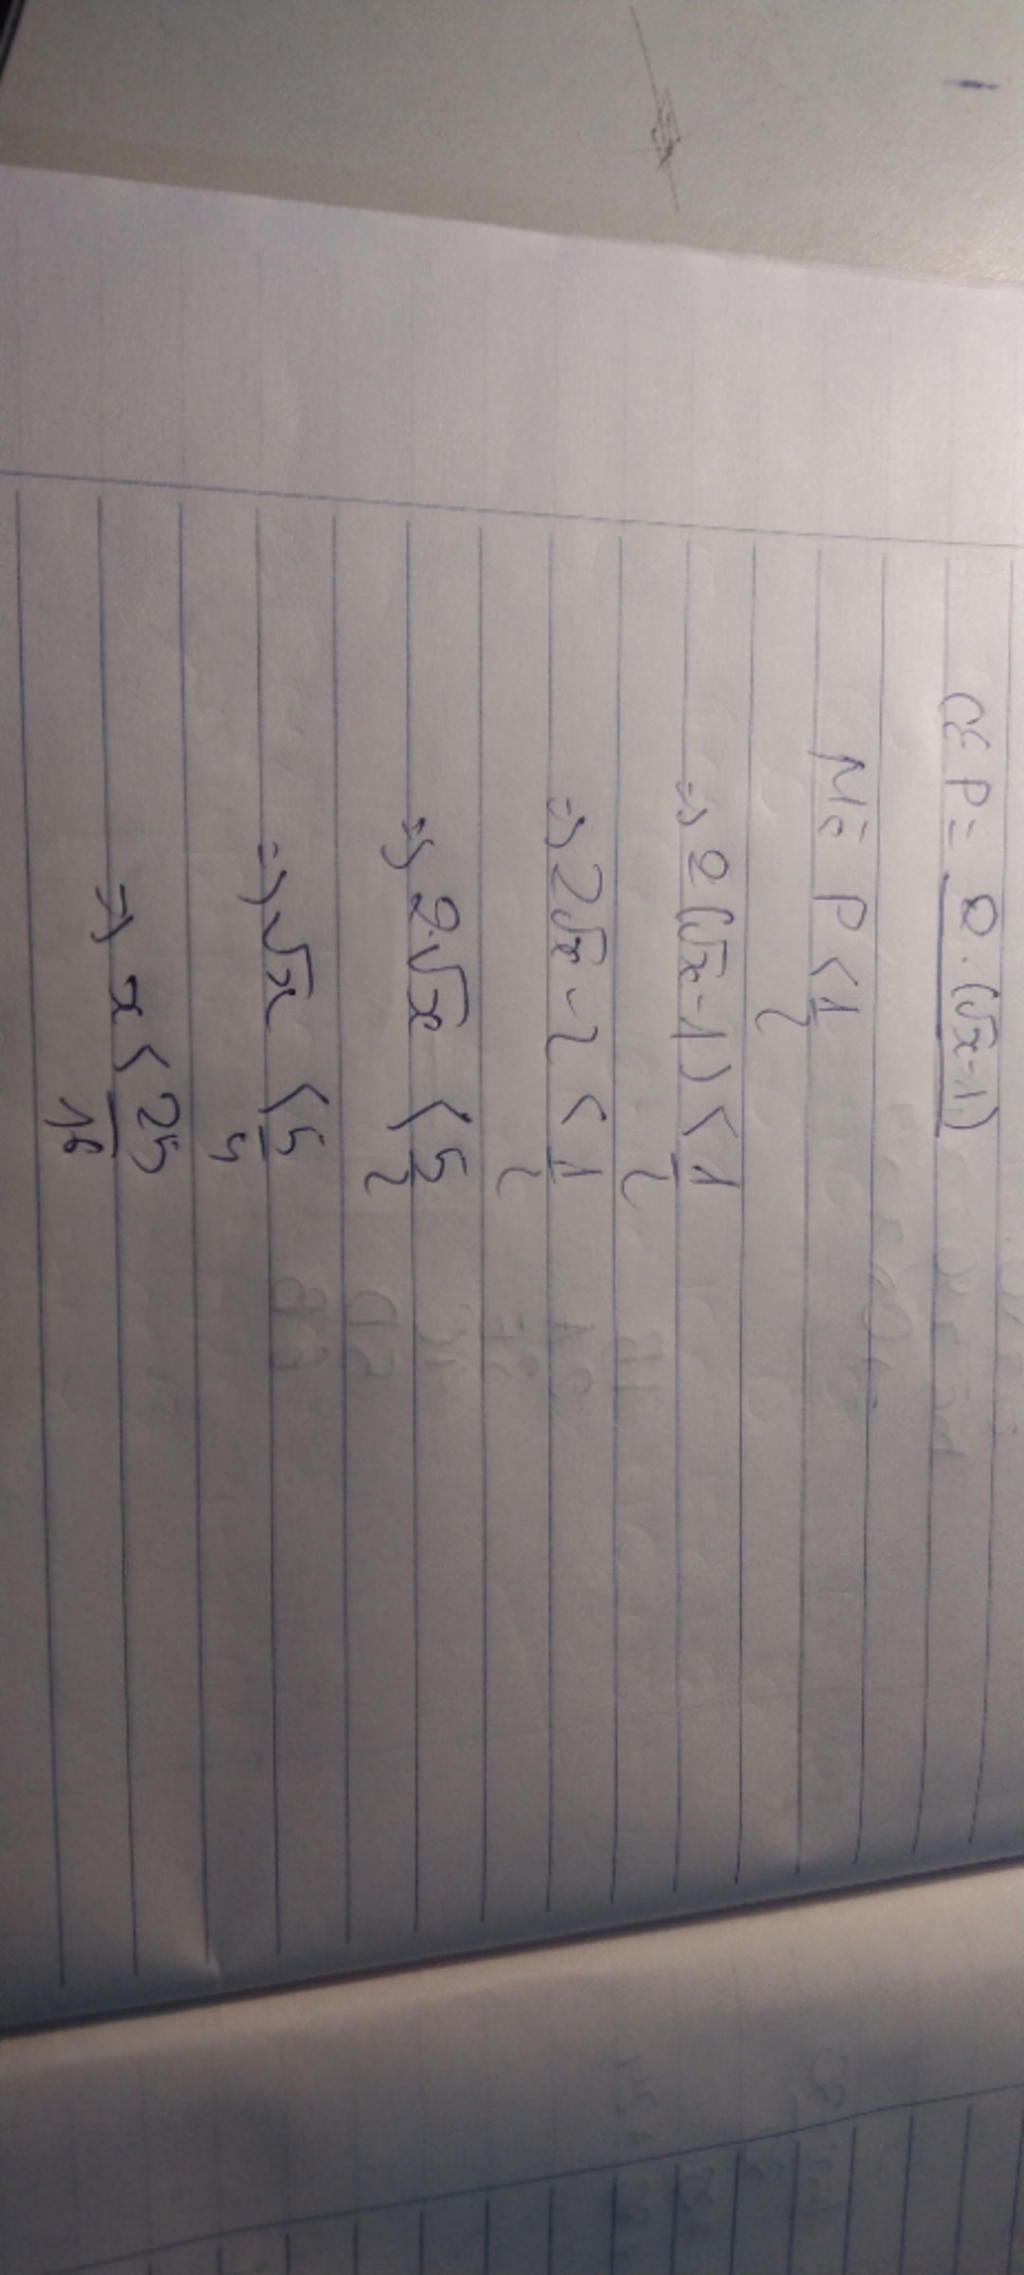 c, P = 2.(√x-1)
Mà P < 1/2
=> 2(√x-1) < 1/2
=> 2√x - 2 < 1/2
=> 2√x < 5/2
=> √x < 5/4
=> x < 25/16